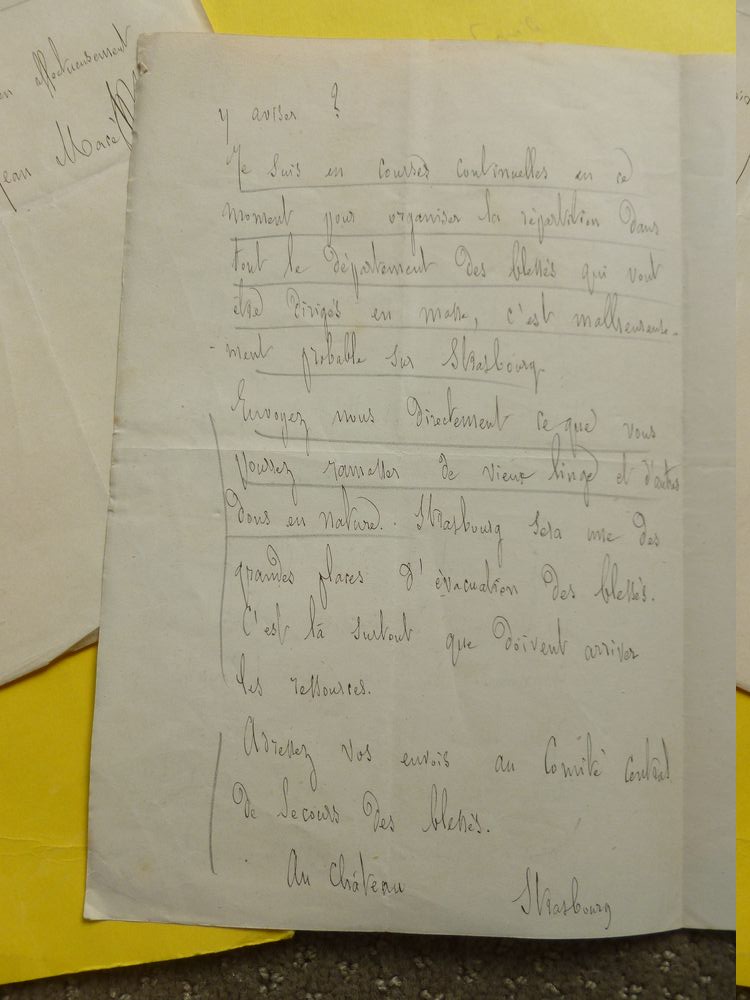 en affectueusement
Jean Macé
y aviser ?
Je suis en courses continuelles en ce
moment pour organiser la répartition dans
tout le département des blessés qui vont
être dirigés en masse, c'est malheureuse-
-ment probable sur Strasbourg.
Envoyez nous directement ce que vous
pourrez ramasser de vieux linge et d'autres
dons en nature. Strasbourg sera une des
grandes places d'évacuation des blessés.
C'est là surtout que doivent arriver
les ressources.
Adressez vos envois au Comité central
de Secours des blessés.
Au Château
Strasbourg